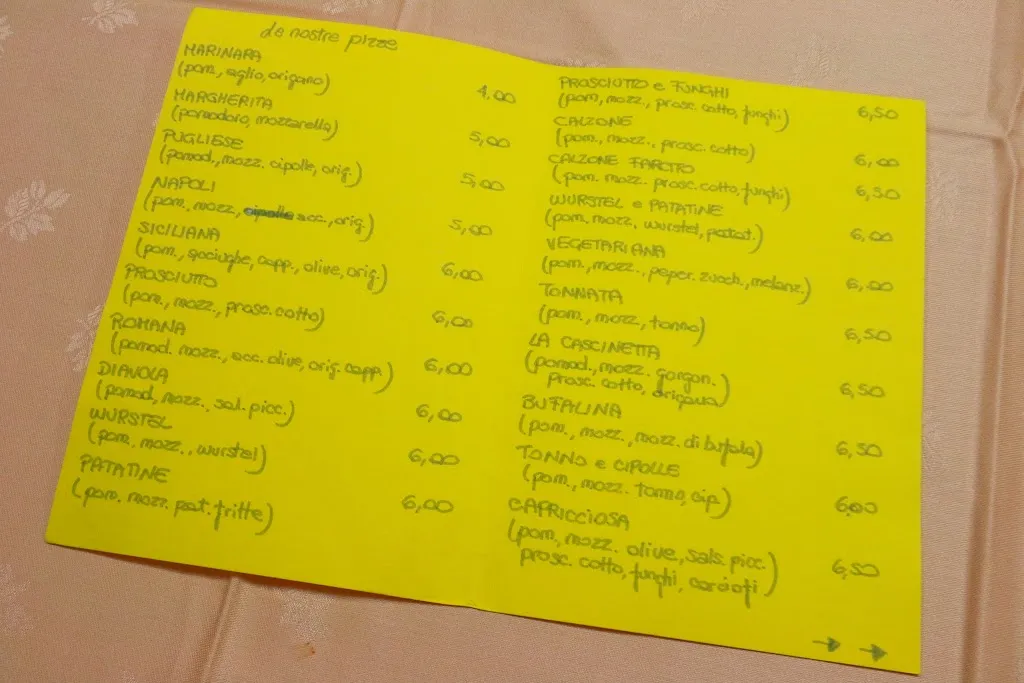 le nostre pizze
MARINARA
(pom., aglio, origano) 4,00
MARGHERITA
(pomodoro, mozzarella) 5,00
PUGLIESE
(pomod., mozz. cipolle, orig.) 5,00
NAPOLI
(pom., mozz., acc., orig.) 5,00
SICILIANA
(pom., acciughe, capp., olive, orig.) 6,00
PROSCIUTTO
(pom., mozz., prosc. cotto) 6,00
ROMANA
(pomod. mozz., acc. olive, orig. capp.) 6,00
DIAVOLA
(pomod, mozz., sal. picc.) 6,00
WURSTEL
(pom. mozz., wurstel) 6,00
PATATINE
(pom. mozz. pat. fritte) 6,00
PROSCIUTTO e FUNGHI
(pom, mozz., prosc. cotto, funghi) 6,50
CALZONE
(pom., mozz., prosc. cotto) 6,00
CALZONE FARCITO
(pom. mozz. prosc. cotto, funghi) 6,50
WURSTEL e PATATINE
(pom. mozz, wurstel, patat.) 6,00
VEGETARIANA
(pom., mozz., peper. zucch., melanz.) 6,00
TONNATA
(pom., mozz., tonno) 6,50
LA CASCINETTA
(pomod., mozz. gorgon.
prosc. cotto, origano) 6,50
BUFALINA
(pom., mozz., mozz. di bufala) 6,50
TONNO e CIPOLLE
(pom., mozz. tonno, cip.) 6,00
CAPRICCIOSA
(pom., mozz. olive, sals. picc.
prosc. cotto, funghi, carciofi) 6,50
→ →